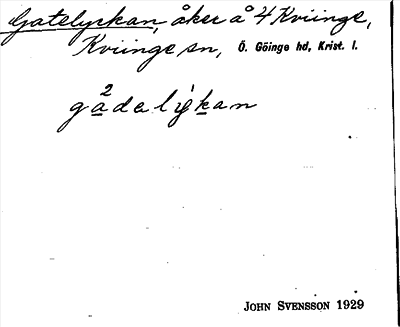 Gatelyckan, åker å 4 Kviinge,
Kviinge sn, Ö. Göinge hd, Krist. l.
ga²dalykan
JOHN SVENSSON 1929